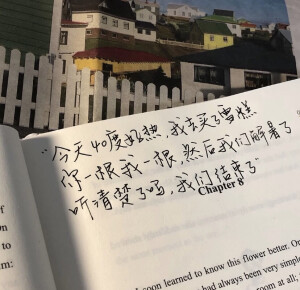 “今天40度好热.我去买了雪糕
你一根我一根,然后我们解暑了
听清楚了吗,我们结束了”
Chapter 8
of
to
m:
soon learned to know this flower better. On
had always been very simple
room at all;